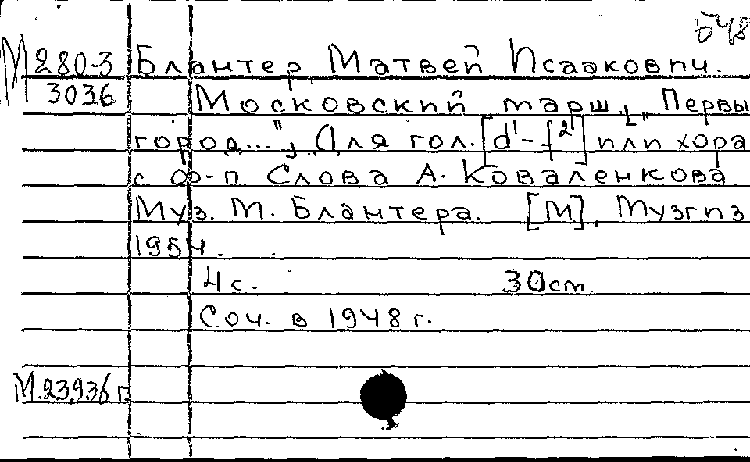 548
М 280-3 Блантер Матвей Исаакович.
3036 Московский марш. [„Первы
город...“]. Для гол. [d¹-f²] или хора
с ф-п. Слова А. Коваленкова
Муз. М. Блантера. [М], Музгиз
1954.
4 с. 30 см
Соч. в 1948 г.
М.23936 г